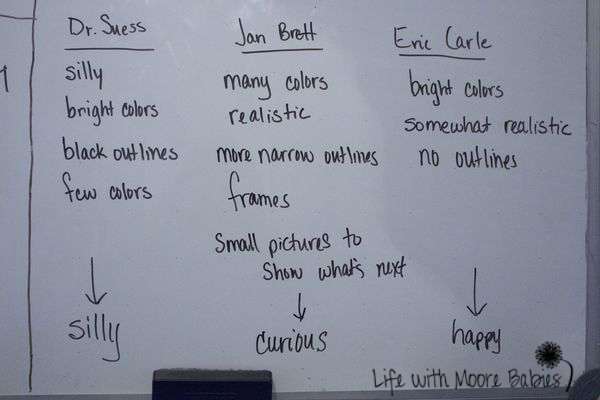 Dr. Suess
silly
bright colors
black outlines
few colors
silly
Jan Brett
many colors
realistic
more narrow outlines
frames
Small pictures to
Show what's next
curious
Eric Carle
bright colors
somewhat realistic
no outlines
happy
Life with Moore Babies